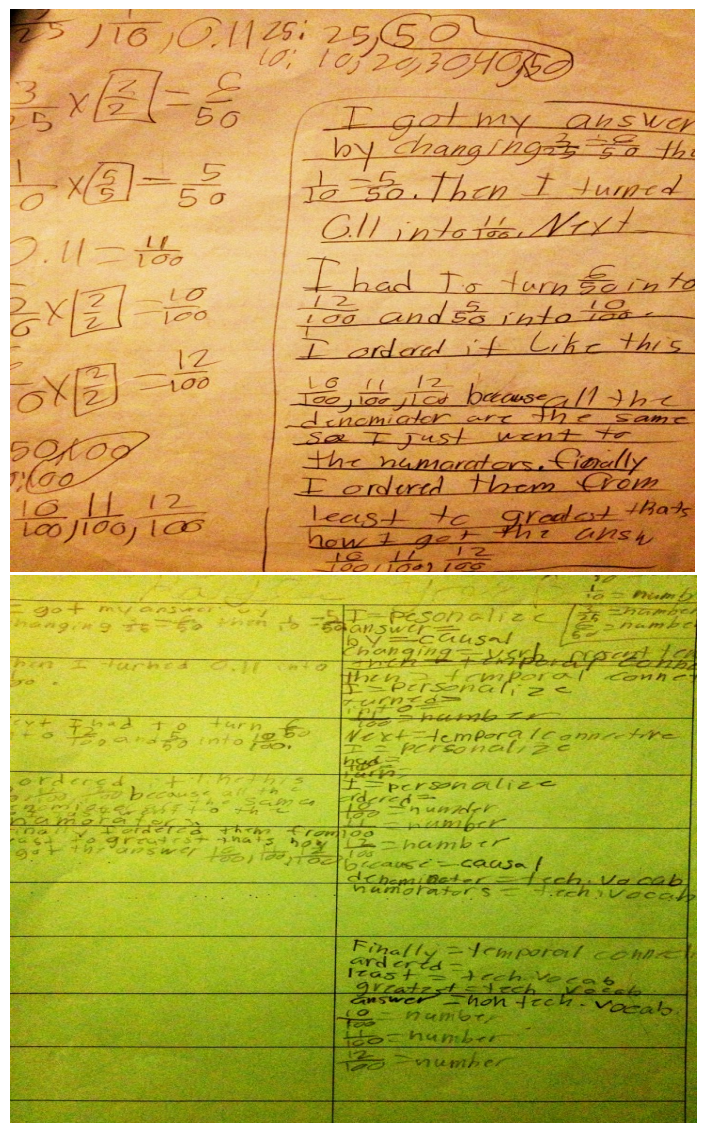 3/25, 1/10, 0.11 25: 25, 50
10; 10, 20, 30, 40, 50
3/25 x 2/2 = 6/50
1/10 x 5/5 = 5/50
0.11 = 11/100
x 2/2 = 10/100
x 2/2 = 12/100
50, 100
100
10/100, 11/100, 12/100
I got my answer
by changing 3/25 = 6/50 the
1/10 = 5/50. Then I turned
0.11 into 11/100. Next
I had to turn 6/50 into
12/100 and 5/50 into 10/100.
I ordered it like this
10/100, 11/100, 12/100 because all the
denomiator are the same
so I just went to
the numarators. finally
I ordered them from
least to greatest thats
how I got the answ
10/100, 11/100, 12/100
I got my answer by
changing 3/25 = 6/50 then 1/10 = 5/50
then I turned 0.11 into
Next I had to turn 6/50
into 12/100 and 5/50 into 10/100.
ordered it like this
because all the
same
to the
numarator
finally I ordered them from
least to greatest thats how
I got the answer 10/100, 11/100, 12/100
1/10 = numb
3/25 = number
6/50 = number
I = pesonalize
answer =
by = causal
changing = verb present ten
then = temporal conne
then = temporal connec
I = personalize
turned =
into =
11/100 = number
Next = temporal connective
I = personalize
had =
turn =
I = personalize
ordered =
10/100 = number
11/100 = number
12/100 = number
because = causal
denominater = tech. vocab
numorators = tech. vocab
Finally = temporal connecti
ordered =
least = tech. vocab
greatest = tech. vocab
answer = non tech. vocab
10/100 = number
11/100 = number
12/100 = number